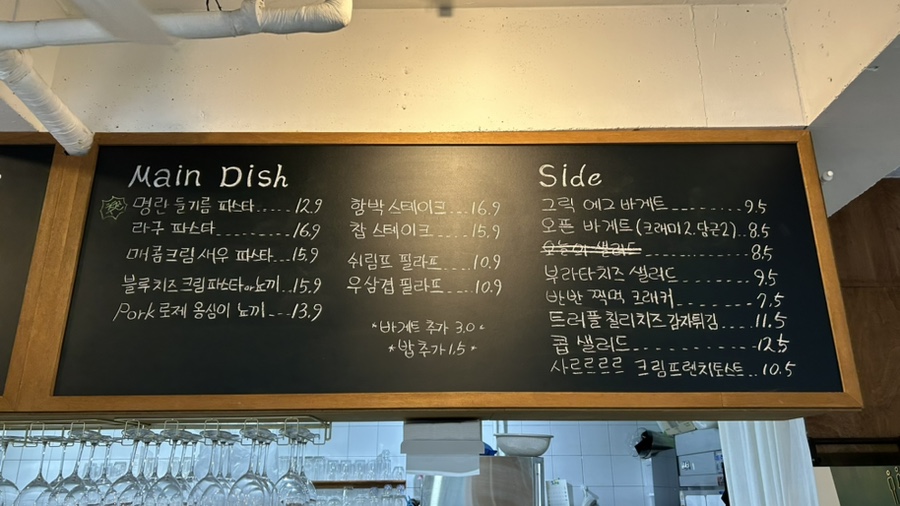 Main Dish
명란 들기름 파스타......12.9
라구 파스타..........16.9
매콤크림새우 파스타...15.9
블루치즈크림파스타or뇨끼..15.9
Pork로제 옹심이 뇨끼...13.9
함박스테이크...16.9
찹 스테이크....15.9
쉬림프 필라프....10.9
우삼겹 필라프....10.9
*바게트 추가 3.0*
*밥추가1.5*
Side
그릭 에그 바게트.........9.5
오픈 바게트(크래미2.당근2)..8.5
오늘의 샐러드..........8.5
부라타치즈 샐러드........9.5
반반 찍먹 크래커........7.5
트러플칠리치즈감자튀김....11.5
콥 샐러드..........12.5
사르르르르 크림프렌치토스트..10.5